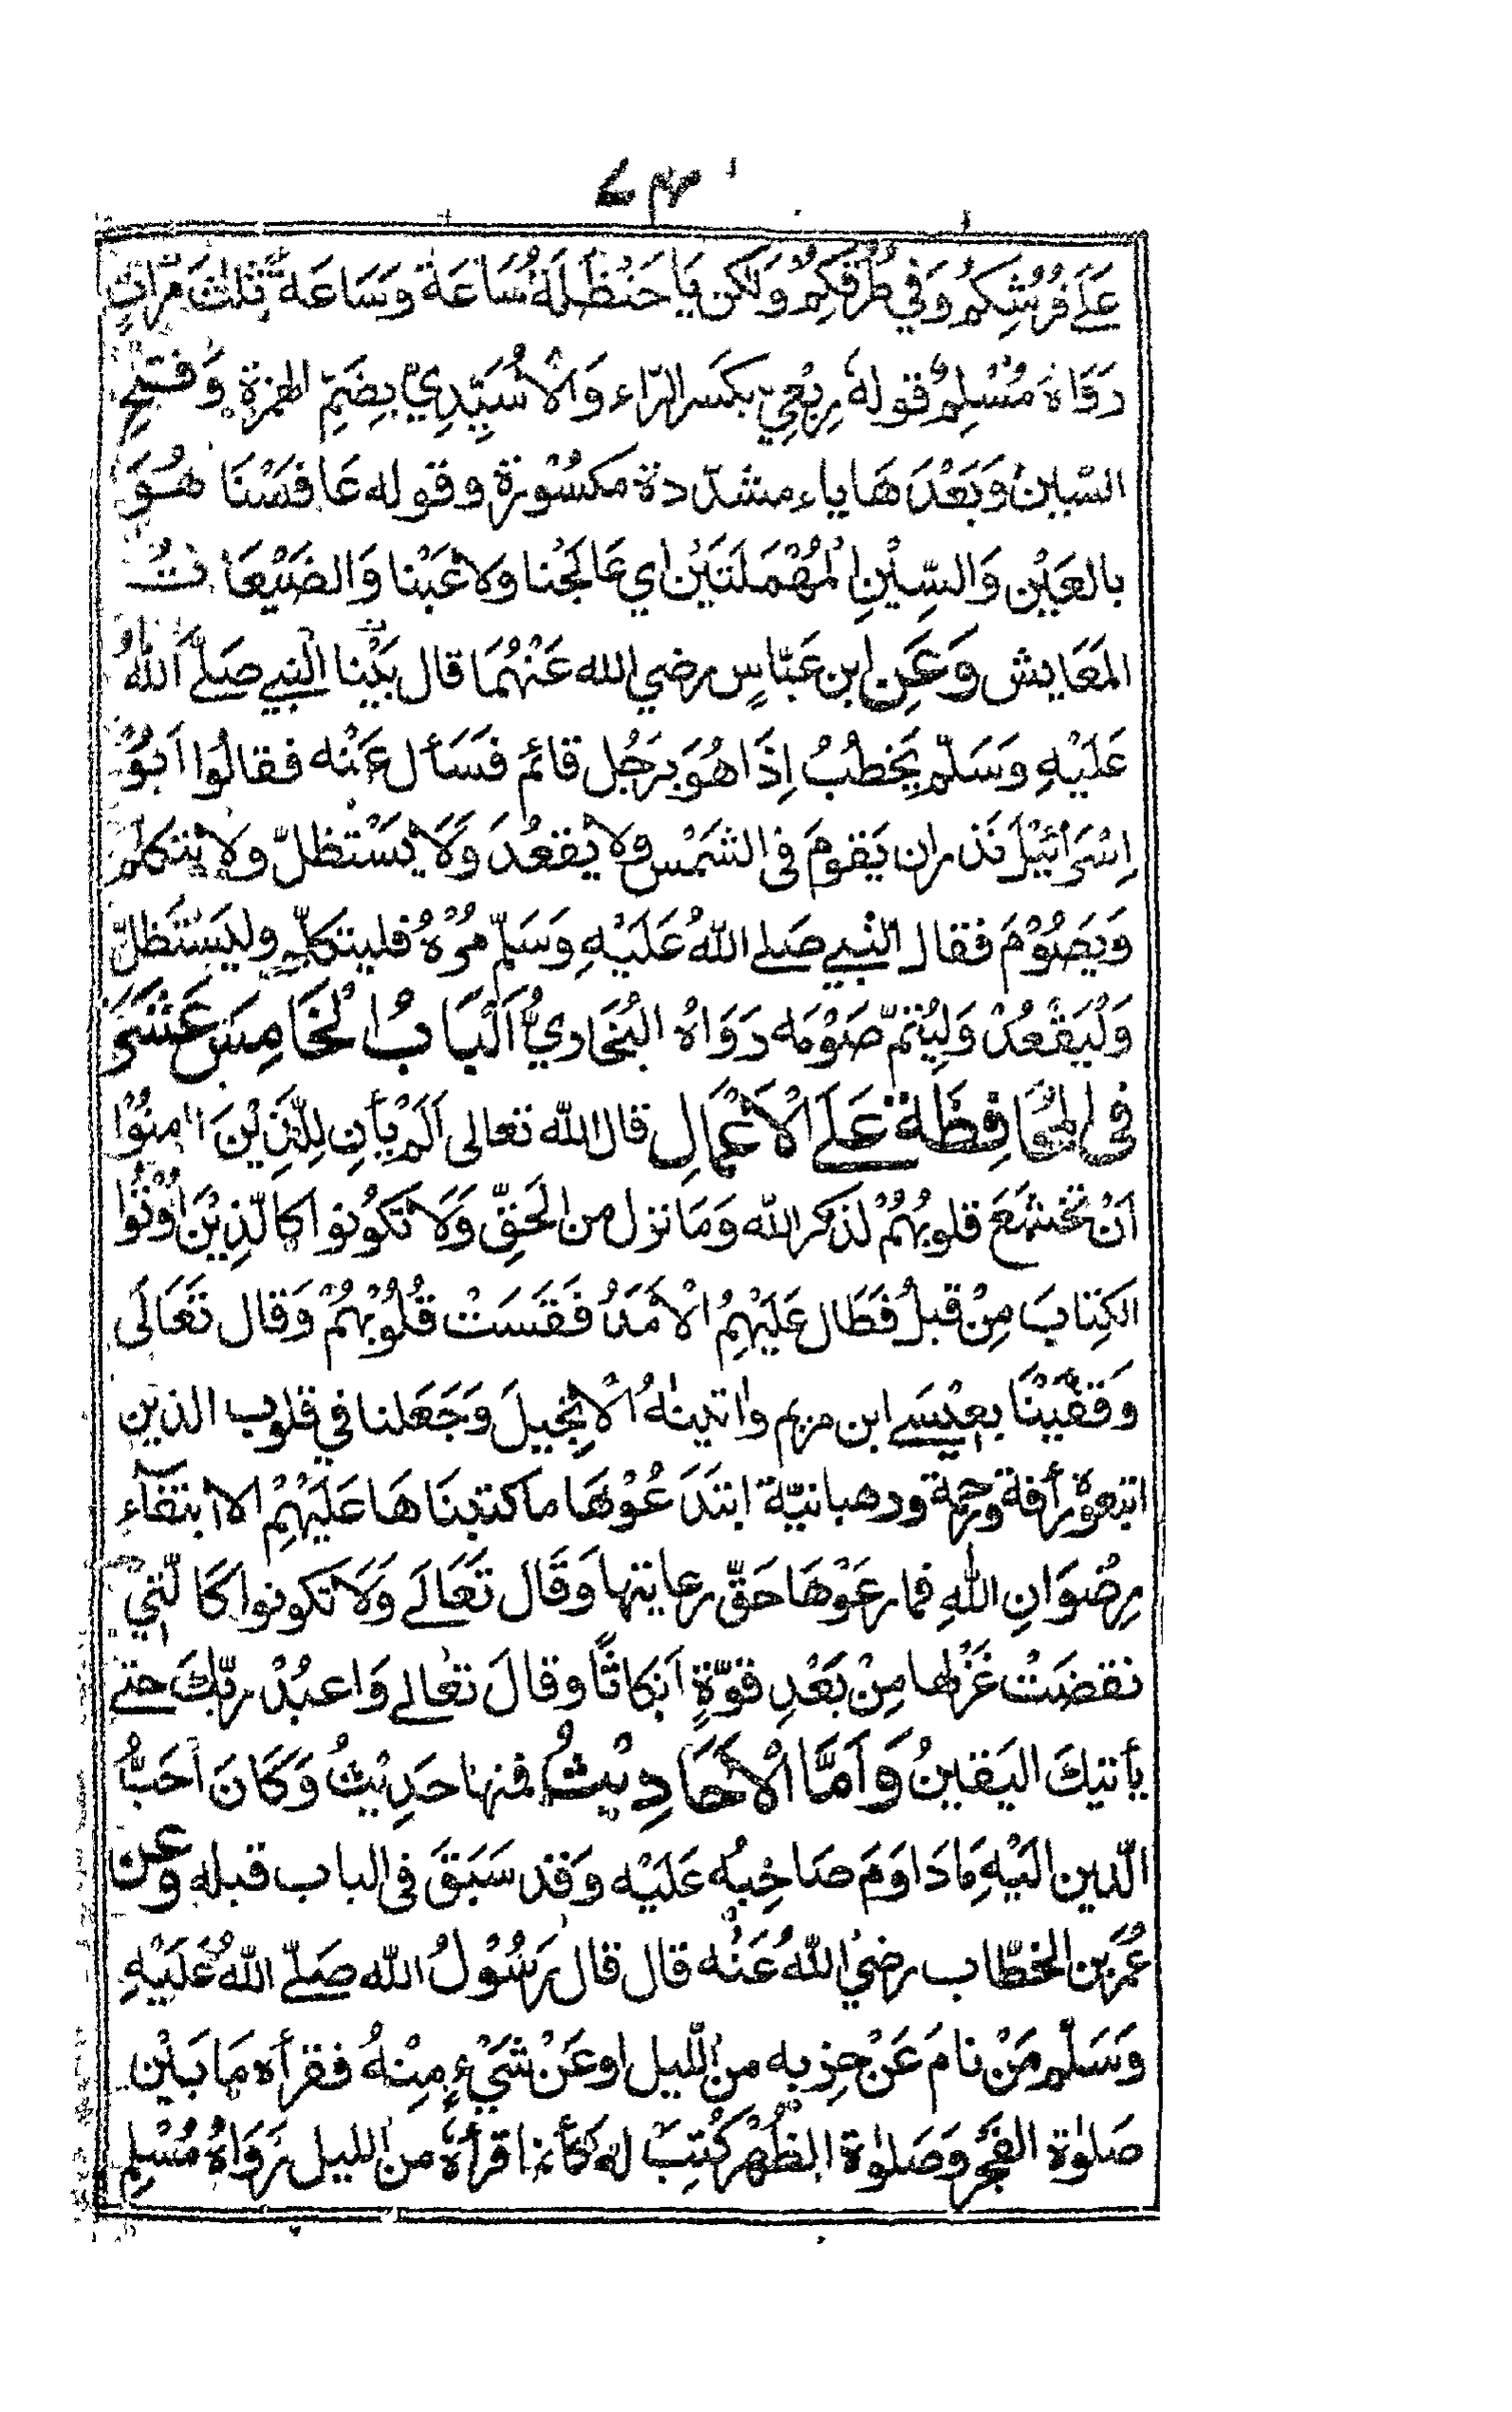 ۷۴
عَلَے فُرُشِكُمْ وَفِي طُرُقِكُمْ وَلٰكن يَا حَنْظَلَةُ سَاعَةً وَسَاعَةً ثَلٰثَ مَرَّاتٍ
رَوَاهُ مُسْلِمٌ قوله رِبْعِيّ بكَسر الرّاء وَالْاُسَيِّدِيّ بِضَمِّ الهمزة وَفتحِ
السّينِ وَبَعْدَهَا ياء مشدّدة مكسُوْرة وقوله عَافَسْنَا هُوَ
بالعَيْن وَالسِّيْنِ الْمُهْمَلَتَيْن اي عَالَجْنا ولاعَبْنا وَالضَيْعَاتُ
المَعَايش وَعَنِ ابن عَبّاسٍ رضي الله عَنْهُمَا قال بَيْنا النَبِي صَلَّے اللهُ
عَلَيْهِ وَسَلَّم يَخطُبُ اِذَا هُوَ بِرَجُل قائم فَسَأل عَنْه فقالُوا اَبُوْ
اِسْرَائيْلَ نَذر ان يَقومَ فى الشمْس ولا يقعُدَ وَلَا يَسْتظلّ ولا يتكلم
وَيَصُوْمَ فقال النّبي صَلے اللهُ عَلَيْهِ وَسَلّم مُرْهُ فليتكلّم وليَسْتَظلّ
وَلْيَقْعُدْ وَلِيُتمّ صَوْمَه رَوَاهُ البُخَاريُّ اَلْبَابُ الْخَامِسَ عَشَرَ
فى المُحَافِظَة عَلَے الْاَعْمَالِ قال الله تعالى اَلَمْ يأنِ لِلَّذِيْنَ اٰمنُوْا
اَنْ تخشَعَ قلوبُهُمْ لذكر الله وَمَا نزل من الحَقّ وَلَا تكُونوا كالّذِيْنَ اُوْتُوا
الكِتابَ مِنْ قبلُ فَطَال عَلَيْهِمُ الْاَمَدُ فَقَسَتْ قُلُوْبُهُمْ وَقال تَعَالَى
وَقَفَّيْنَا بِعِيْسَے ابن مريم واٰتيناهُ الْاِنْجِيلَ وَجَعَلنا في قلوب الذين
اتبعوهُ رأفة ورحمة ورهبانيّة ابتَدَعُوْهَا ما كتبنَاهَا عَلَيْهِمْ الا ابتغَآءِ
رِضْوَانِ اللهِ فما رعَوْهَا حَقّ رعايتها وَقَال تَعَالَے وَلَا تكونوا كَالّتِي
نقضَتْ غَزْلها مِنْ بَعْدِ قوّةٍ اَنكاثًا وقالَ تعَالے وَاعبُدْ ربّكَ حتے
يأتيكَ اليَقينُ وَاَمَّا الْاَحَادِيْثُ فمنها حَدِيْثُ وَكَانَ اَحَبُّ
الدّين الَيْهِ مَا دَاوَمَ صَاحِبُه عَلَيْه وَقد سَبَقَ فى الباب قبله وعن
عُمَر بن الخطّاب رضيَ اللهُ عَنْه قال قال رَسُوْلُ الله صَلّے اللهُ عَلَيْهِ
وَسَلّم مَنْ نامَ عَنْ حِزبه من الليل او عَنْ شَيْءٍ مِنْهُ فقرأه مَا بَيْن
صَلٰوة الفَجْر وَصَلٰوة الظُهْر كُتِبَ لهُ كأنما قرأهُ من الليل رَوَاهُ مُسْلِم